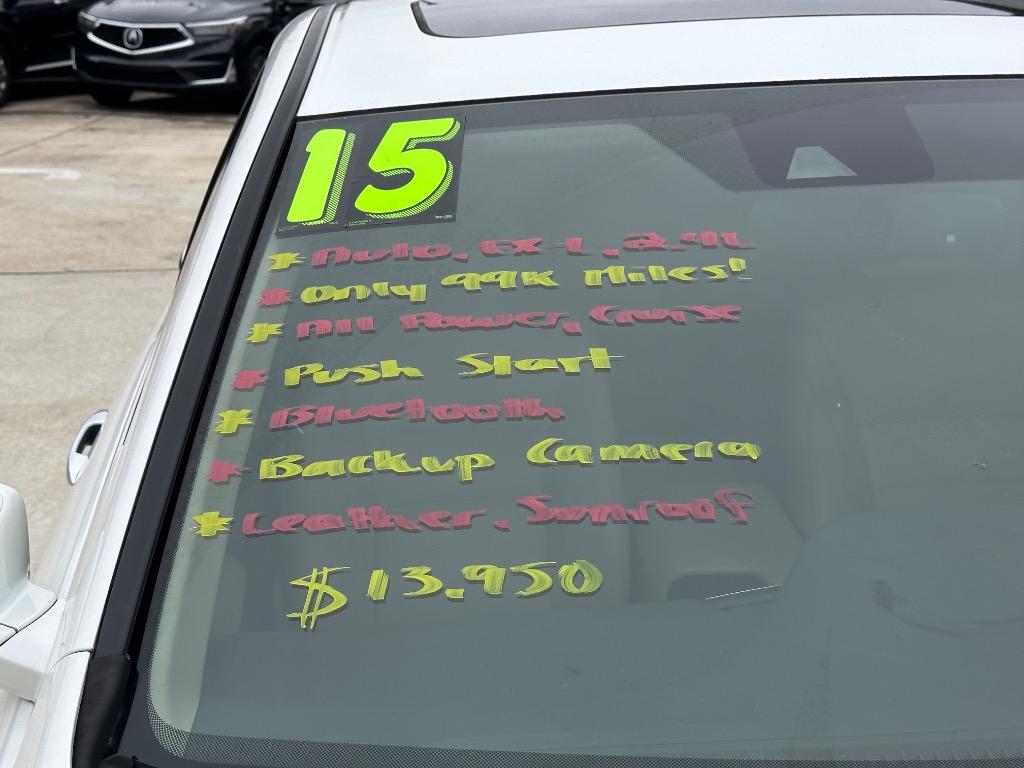 15
* Auto, EX-L, 2.4L
* Only 99K Miles!
* All Power, Cruise
* Push Start
* Bluetooth
* Backup Camera
* Leather, Sunroof
$13,950